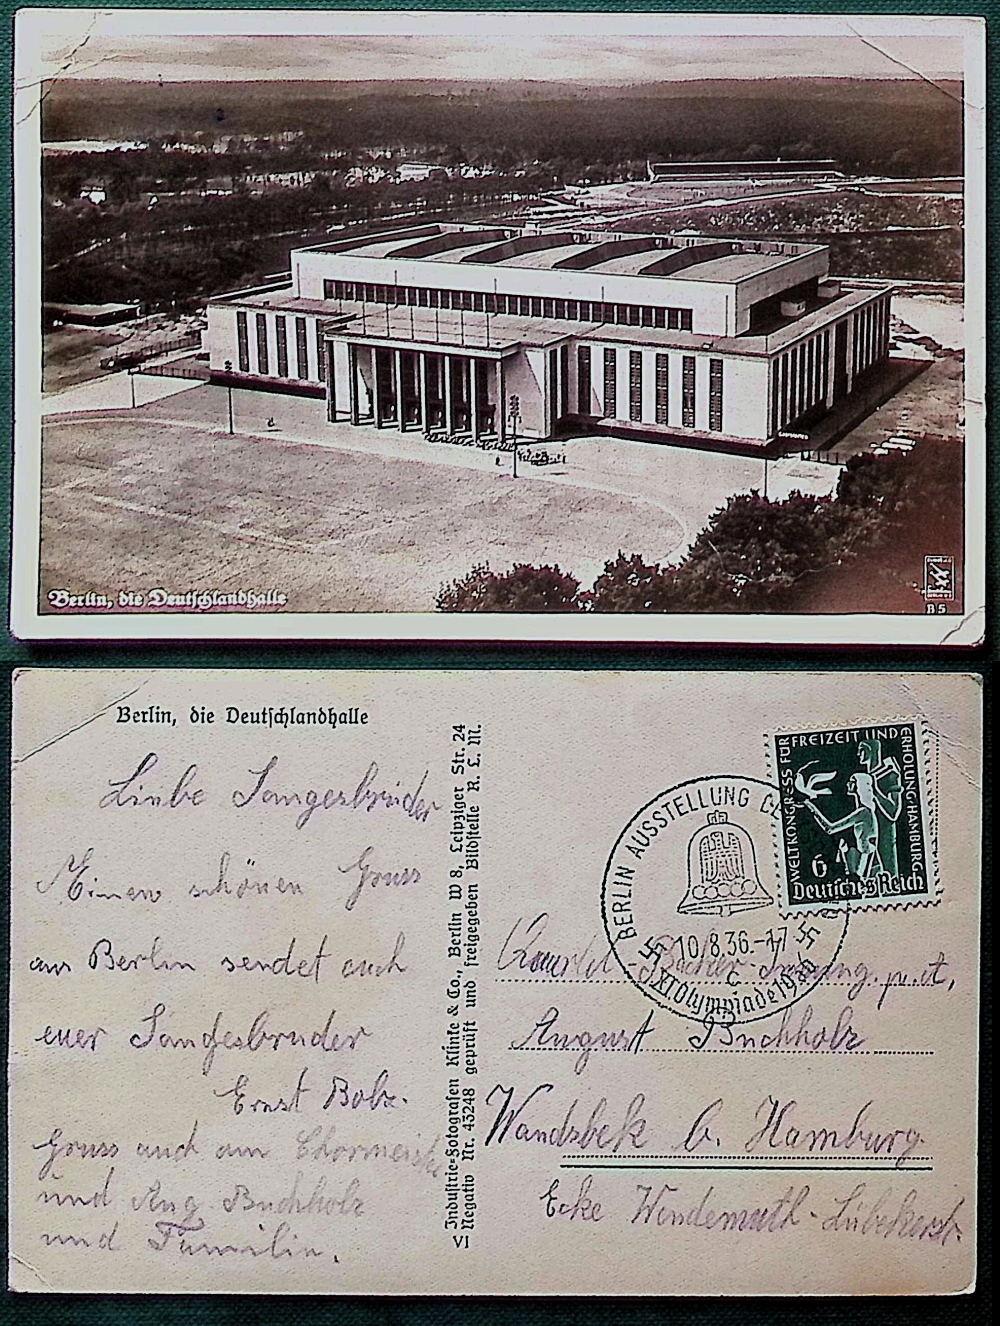 Berlin, die Deutschlandhalle
B 5
Berlin, die Deutschlandhalle
Liebe Sangesbrüder
Einen schönen Gruss
aus Berlin sendet euch
euer Sangesbruder
Ernst Bolz.
Gruss auch an Chormeister
und Aug. Buchholz
und Familie.
Industrie-Fotografen Klinke & Co., Berlin W 8, Leipziger Str. 24
VI Negativ Nr. 43248 geprüft und freigegeben Bildstelle R. L. M.
WELTKONGRESS FÜR FREIZEIT UND ERHOLUNG·HAMBURG
6
Deutsches Reich
BERLIN AUSSTELLUNG
10.8.36.-17
c
XI Olympiade 1936
Bäcker-Innung. p. A,
August Buchholz
Wandsbek b. Hamburg.
Ecke Wendemuth-Lübekerstr.